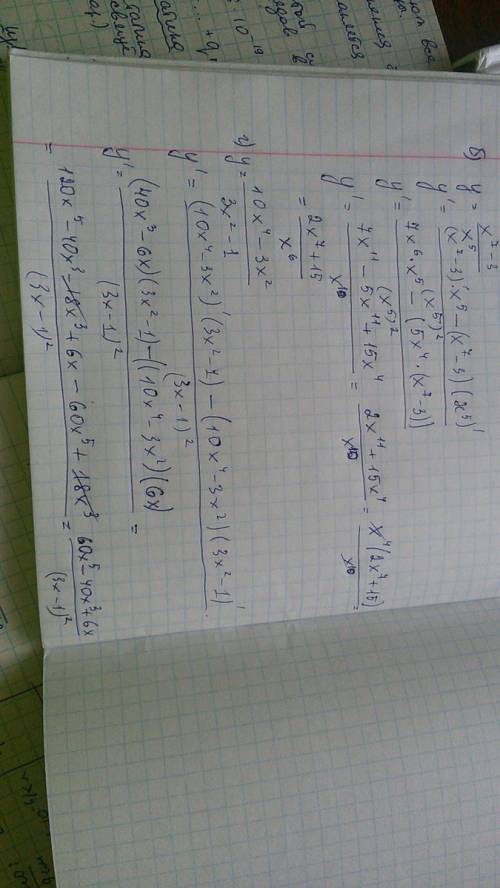 б) y = (x⁷-3)/x⁵
y' = ((x⁷-3)'·x⁵ - (x⁷-3)(x⁵)')/(x⁵)²
y' = (7x⁶x⁵ - (5x⁴·(x⁷-3)))/(x⁵)²
y' = (7x¹¹ - 5x¹¹ + 15x⁴)/x¹⁰ = (2x¹¹ + 15x⁴)/x¹⁰ = x⁴(2x⁷+15)/x¹⁰ =
= (2x⁷+15)/x⁶
г) y = (10x⁴ - 3x²)/(3x² - 1)
y' = ((10x⁴-3x²)'(3x²-1) - (10x⁴-3x²)(3x²-1)')/(3x-1)²
y' = ((40x³-6x)(3x²-1) - ((10x⁴-3x²)(6x)))/(3x-1)² =
= (120x⁵ - 40x³ - 18x³ + 6x - 60x⁵ + 18x³)/(3x-1)² = (60x⁵ - 40x³ + 6x)/(3x-1)²
10⁻¹⁹